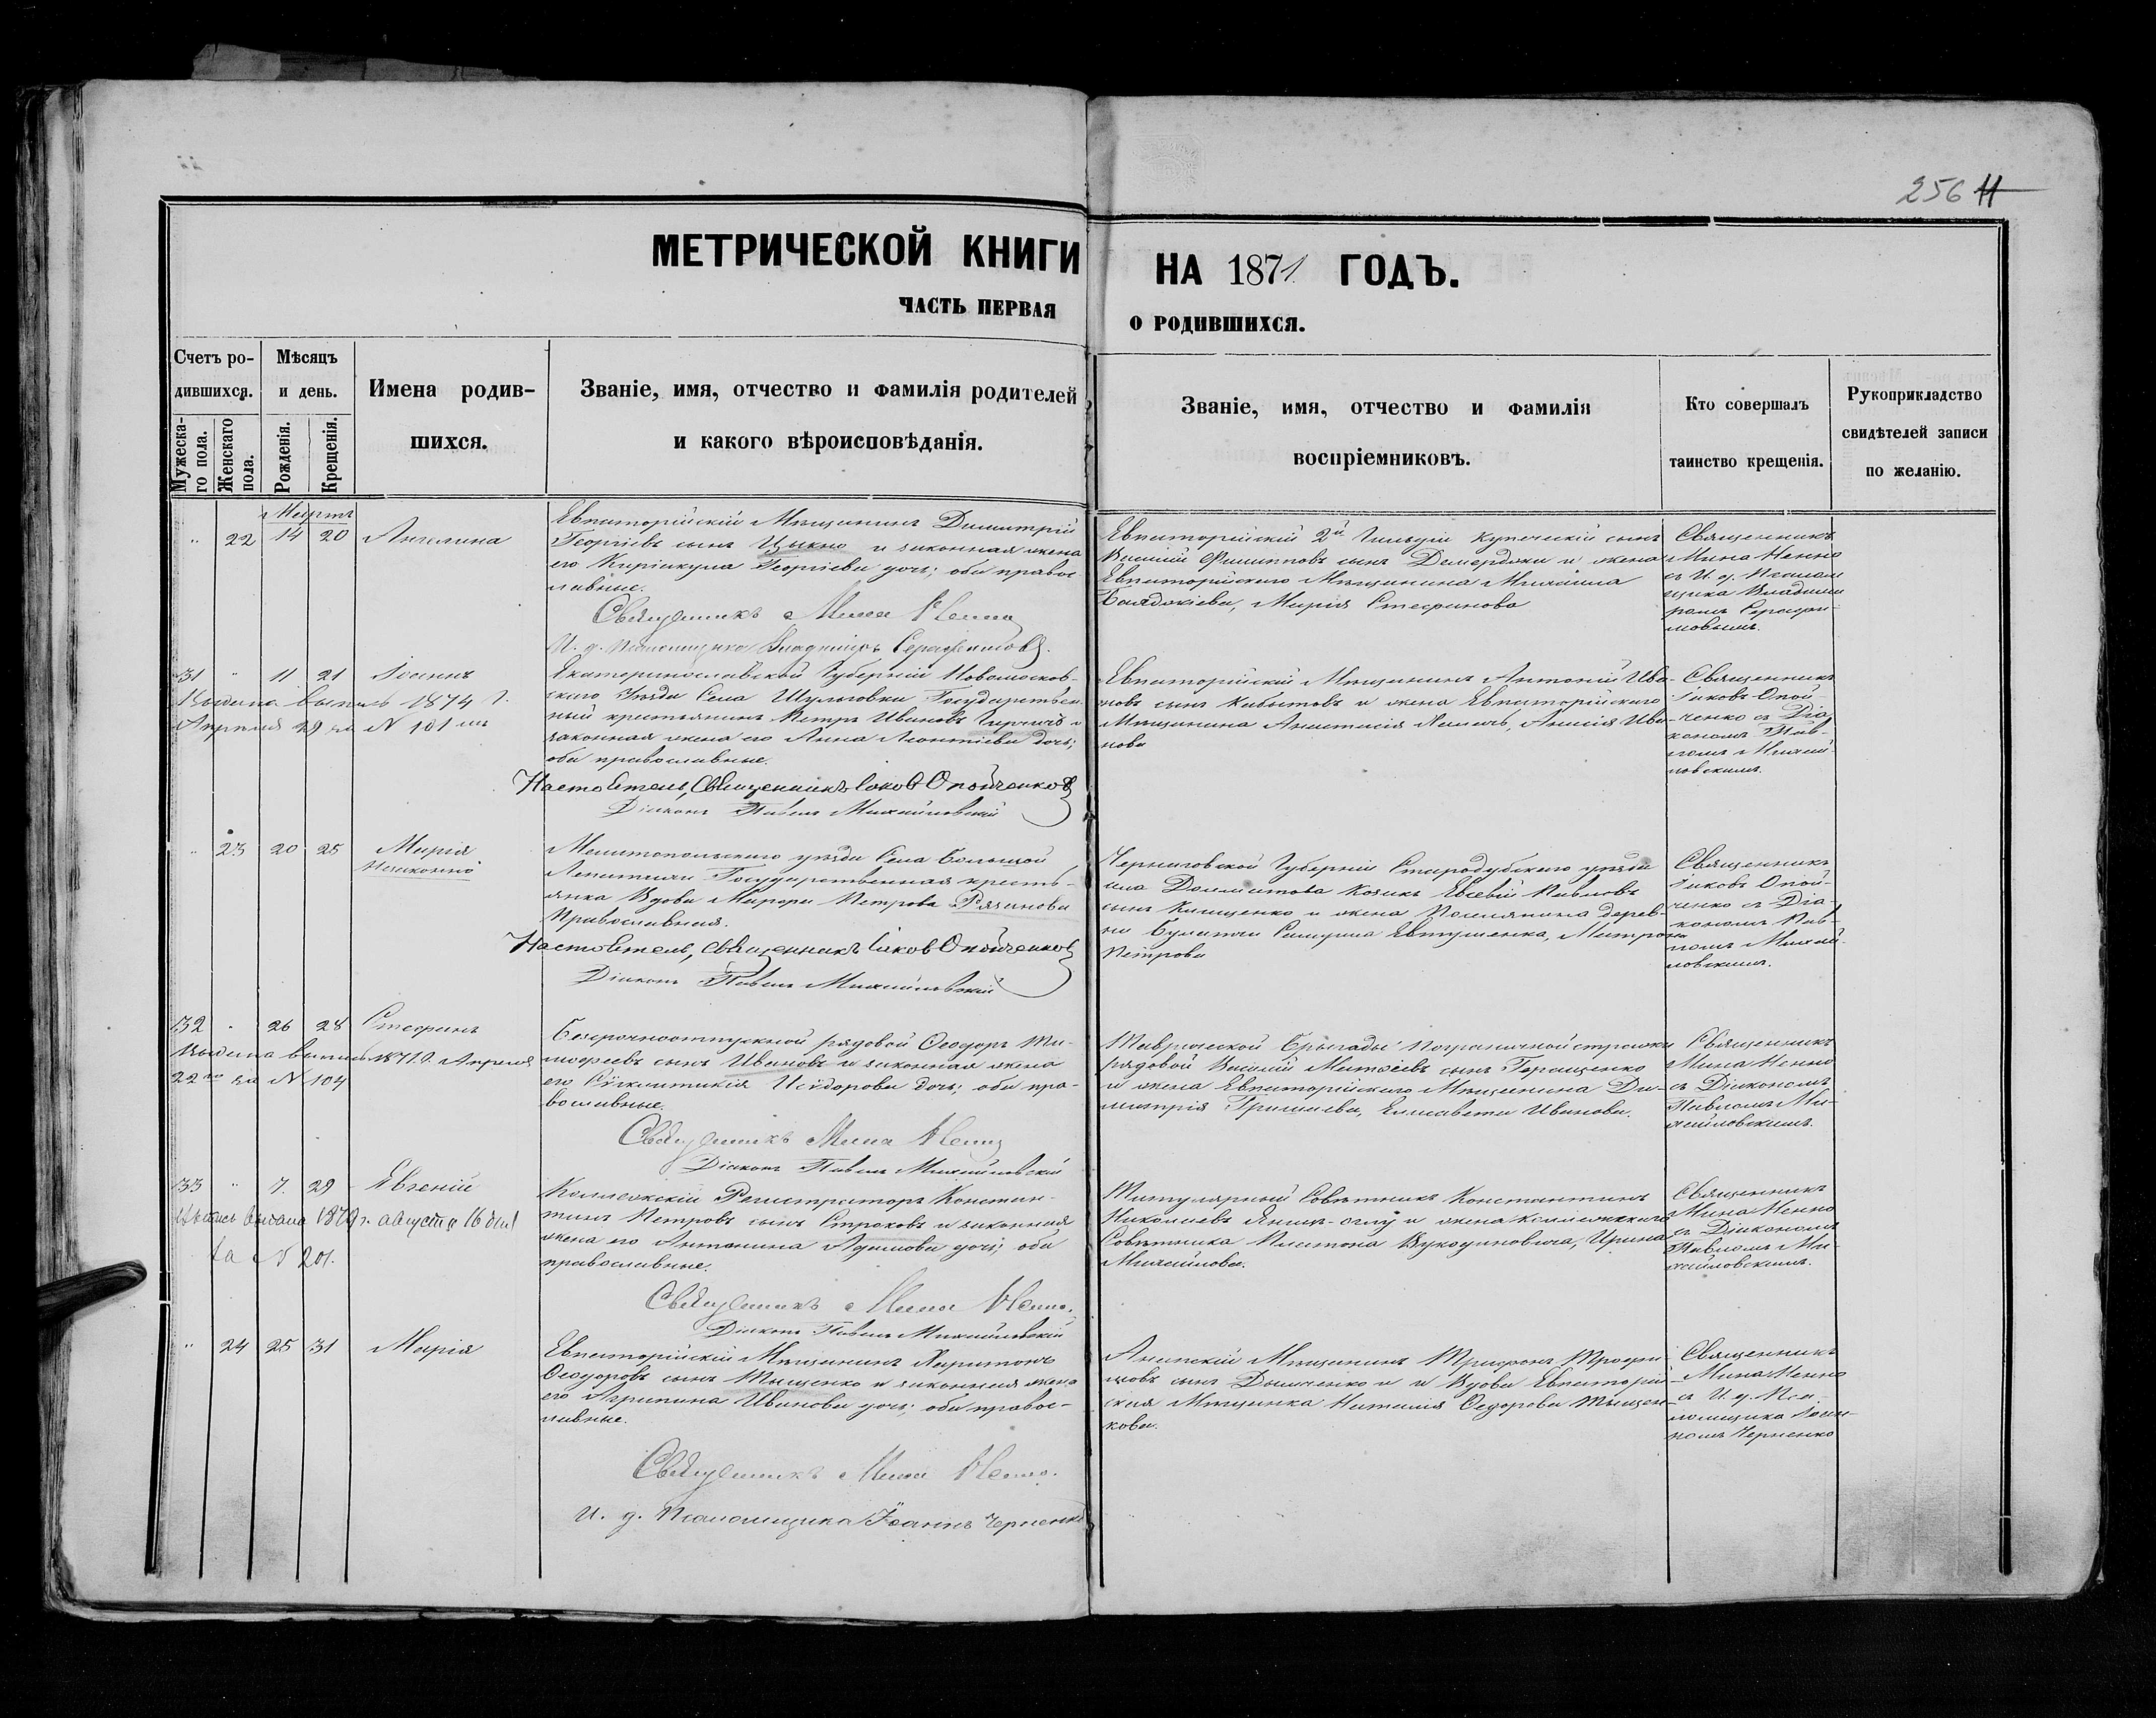 256 11
МЕТРИЧЕСКОЙ КНИГИ НА 1871 ГОДЪ.
ЧАСТЬ ПЕРВАЯ О РОДИВШИХСЯ.
Счетъ ро-
дившихся.
Мужеска-
го пола.
Женскаго
пола.
Мѣсяцъ
и день.
Рожденія.
Крещенія.
Имена родив-
шихся.
Званіе, имя, отчество и фамилія родителей
и какого вѣроисповѣданія.
Званіе, имя, отчество и фамилія
воспріемниковъ.
Кто совершалъ
таинство крещенія.
Рукоприкладство
свидѣтелей записи
по желанію.
Мартъ
" 22 14 20 Ангелина
Евпаторійскій Мѣщанинъ Димитрій
Георгіевъ сынъ Цыкно и законная жена
его Киріакула Георгіева дочь; оба правос-
лавные.
Священникъ Мина Ненно
И. д. Псаломщика Владиміръ Серафимовъ.
Евпаторійскій 2й Гильдіи купеческій сынъ
Василій Филипповъ сынъ Демерджи и жена
Евпаторійскаго Мѣщанина Михаила
Мария Стефанова
Священникъ
Мина Ненно
съ И. д. Псалом-
щика Владими-
ромъ Серафи-
мовымъ.
31 " 11 21 Іоаннъ
Выдана выпись 1874 г.
Апрѣля 29 за N 101 мъ
Екатеринославской Губерніи Новомосков-
скаго Уѣзда Села Шульговки Государствен-
ный крестьянинъ Петръ Ивановъ и
законная жена его Анна Леонтіева дочь;
оба православные.
Настоятель, Священникъ Іаковъ Опойченковъ
Діаконъ Павелъ Михайловскій
Евпаторійскій Мѣщанинъ Антоній Ива-
новъ сынъ и жена Евпаторійскаго
Мѣщанина Анастасія Ива-
нова
Священникъ
Іаковъ Опой-
ченко съ Діа-
кономъ Пав-
ломъ Михай-
ловскимъ.
" 23 20 25 Марія
Незаконно
Мелитопольскаго уѣзда Села Большой
Лепатихи Государственная кресть-
янка Вдова Петрова
Православная.
Настоятель, Священникъ Іаковъ Опойченковъ
Діаконъ Павелъ Михайловскій
Черниговской Губерніи Стародубскаго уѣзда
села Козакъ Евсевій Павловъ
сынъ Кищенко и жена Поселянина дерев-
ни Евтушенка, Матрона
Петрова
Священникъ
Іаковъ Опой-
ченко съ Діа-
кономъ Пав-
ломъ Михай-
ловскимъ.
32 " 26 28 Стефанъ
Выдана выпись 1871 г. Апрѣля
22го за N 104
Безсрочноотпускной рядовой Ѳеодоръ Ти-
моѳеевъ сынъ Ивановъ и законная жена
его Исидорова дочь; оба пра-
вославные.
Священникъ Мина Ненно
Діаконъ Павелъ Михайловскій
Таврической Бригады Пограничной стражи
рядовой Василій Матвѣевъ сынъ Геращенко
и жена Евпаторійскаго Мѣщанина Ди-
митрія Елисавета Иванова.
Священникъ
Мина Ненно
съ Діакономъ
Павломъ Ми-
хайловскимъ.
33 " 7. 29 Евгеній
Метрика выдана 1879 г. августа 16 дня
за N 201.
Коллежскій Регистраторъ Констан-
тинъ Петровъ сынъ Строковъ и законная
жена его Антонина Адамова дочь; оба
православные.
Священникъ Мина Ненно.
Діаконъ Павелъ Михайловскій
Титулярный Совѣтникъ Константинъ
Николаевъ и жена Коллежскаго
Совѣтника Платона Вукодиновича, Ирина
Михайлова.
Священникъ
Мина Ненно
съ Діакономъ
Павломъ Ми-
хайловскимъ.
" 24 25 31 Марія
Евпаторійскій Мѣщанинъ Харитонъ
Ѳеодоровъ сынъ Тыщенко и законная жена
его Агрипина Иванова дочь; оба правос-
лавные.
Священникъ Мина Ненно.
И. д. Псаломщика Іоаннъ Черненко
Мѣщанинъ Трифонъ Трофи-
мовъ сынъ и Вдова Евпаторій-
ская Мѣщанка Наталія Ѳедорова Тыщен-
кова.
Священникъ
Мина Ненно
съ И. д. Пса-
ломщика Іоан-
номъ Черненко